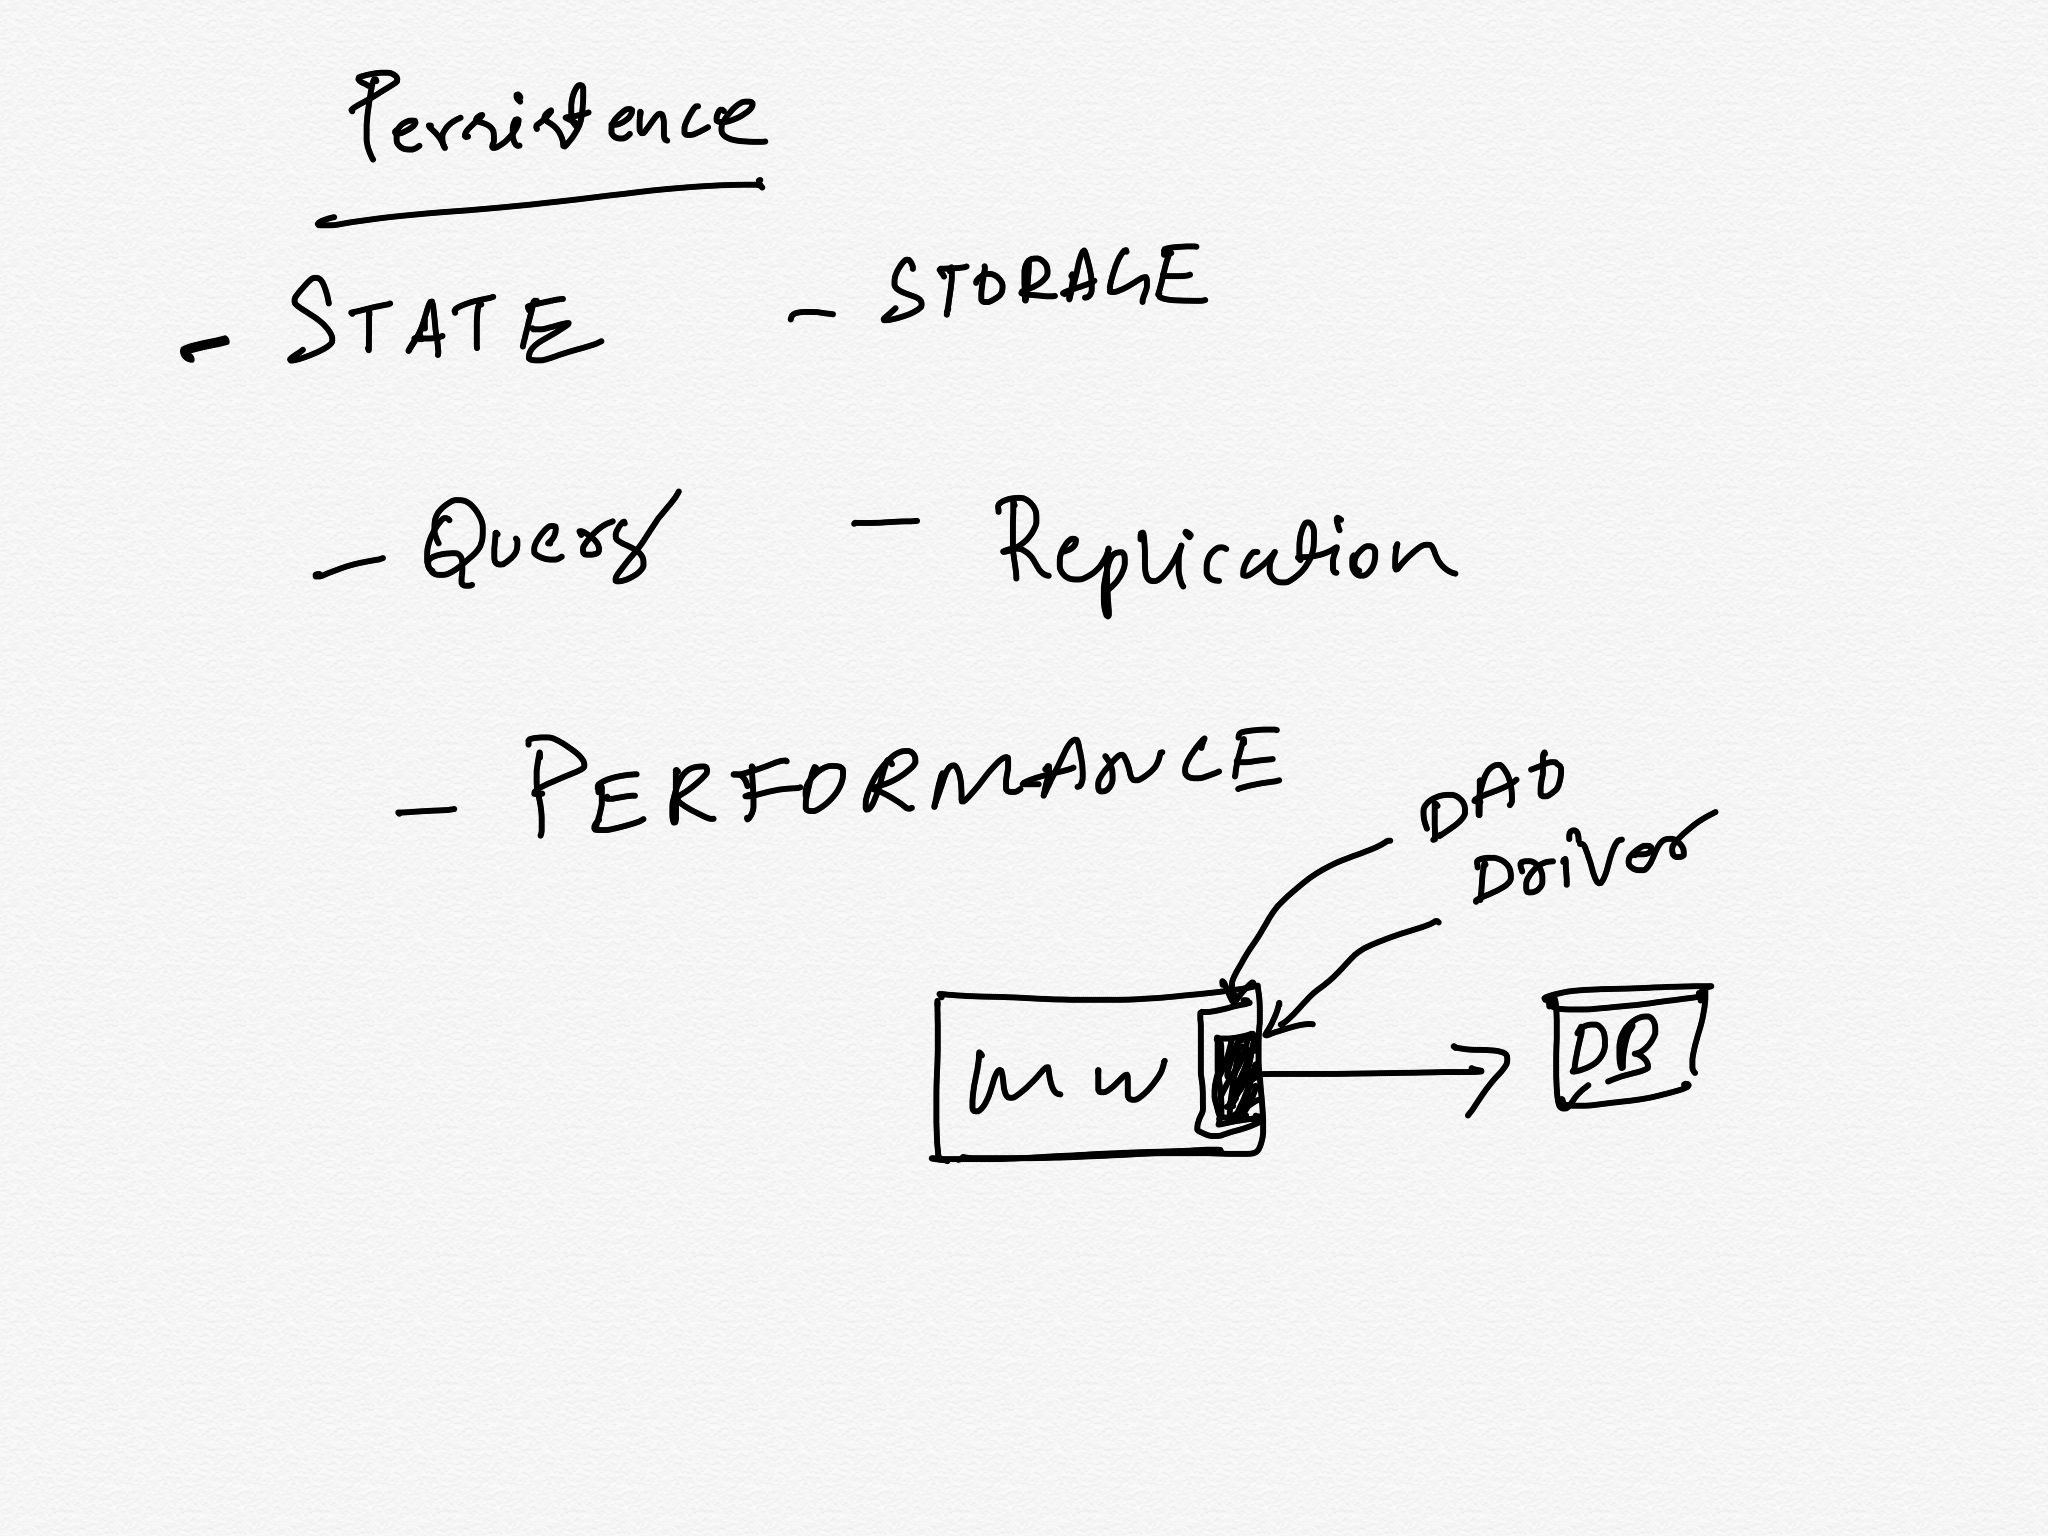 Persistence
- STATE - STORAGE
- Query - Replication
- PERFORMANCE
DAO
Driver
MW
DB